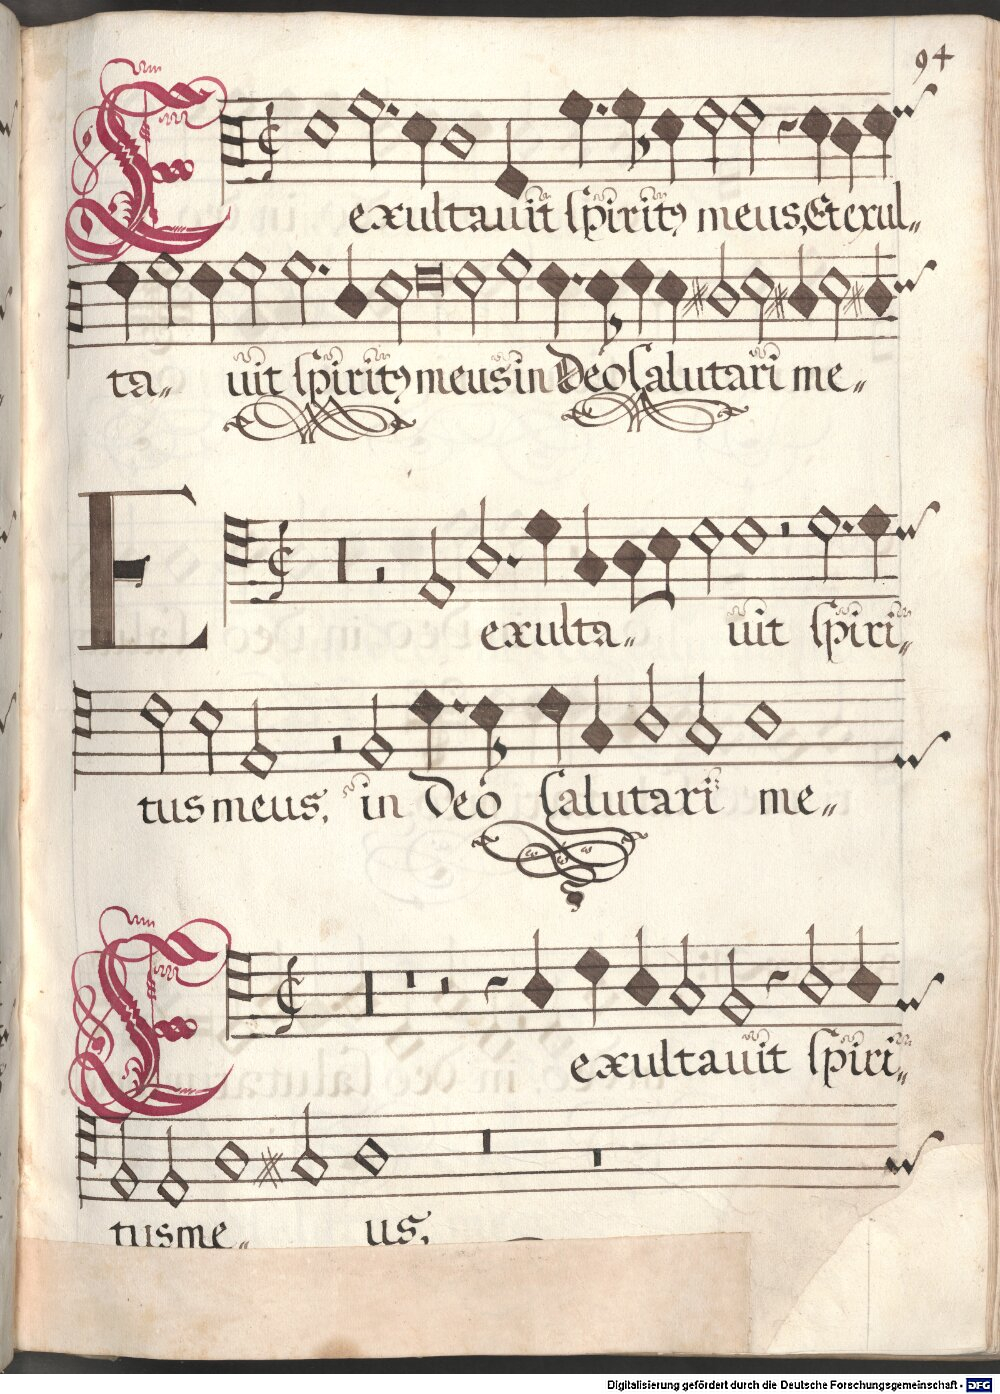 94
E exultauit spiritꝰ meus, Et exul„
ta„ uit spiritꝰ meus in Deo Salutari me„
E exulta„ uit spiri„
tus meus, in Deo Salutari me„
E exultauit spiri„
tus me„ us,
Digitalisierung gefördert durch die Deutsche Forschungsgemeinschaft - DFG